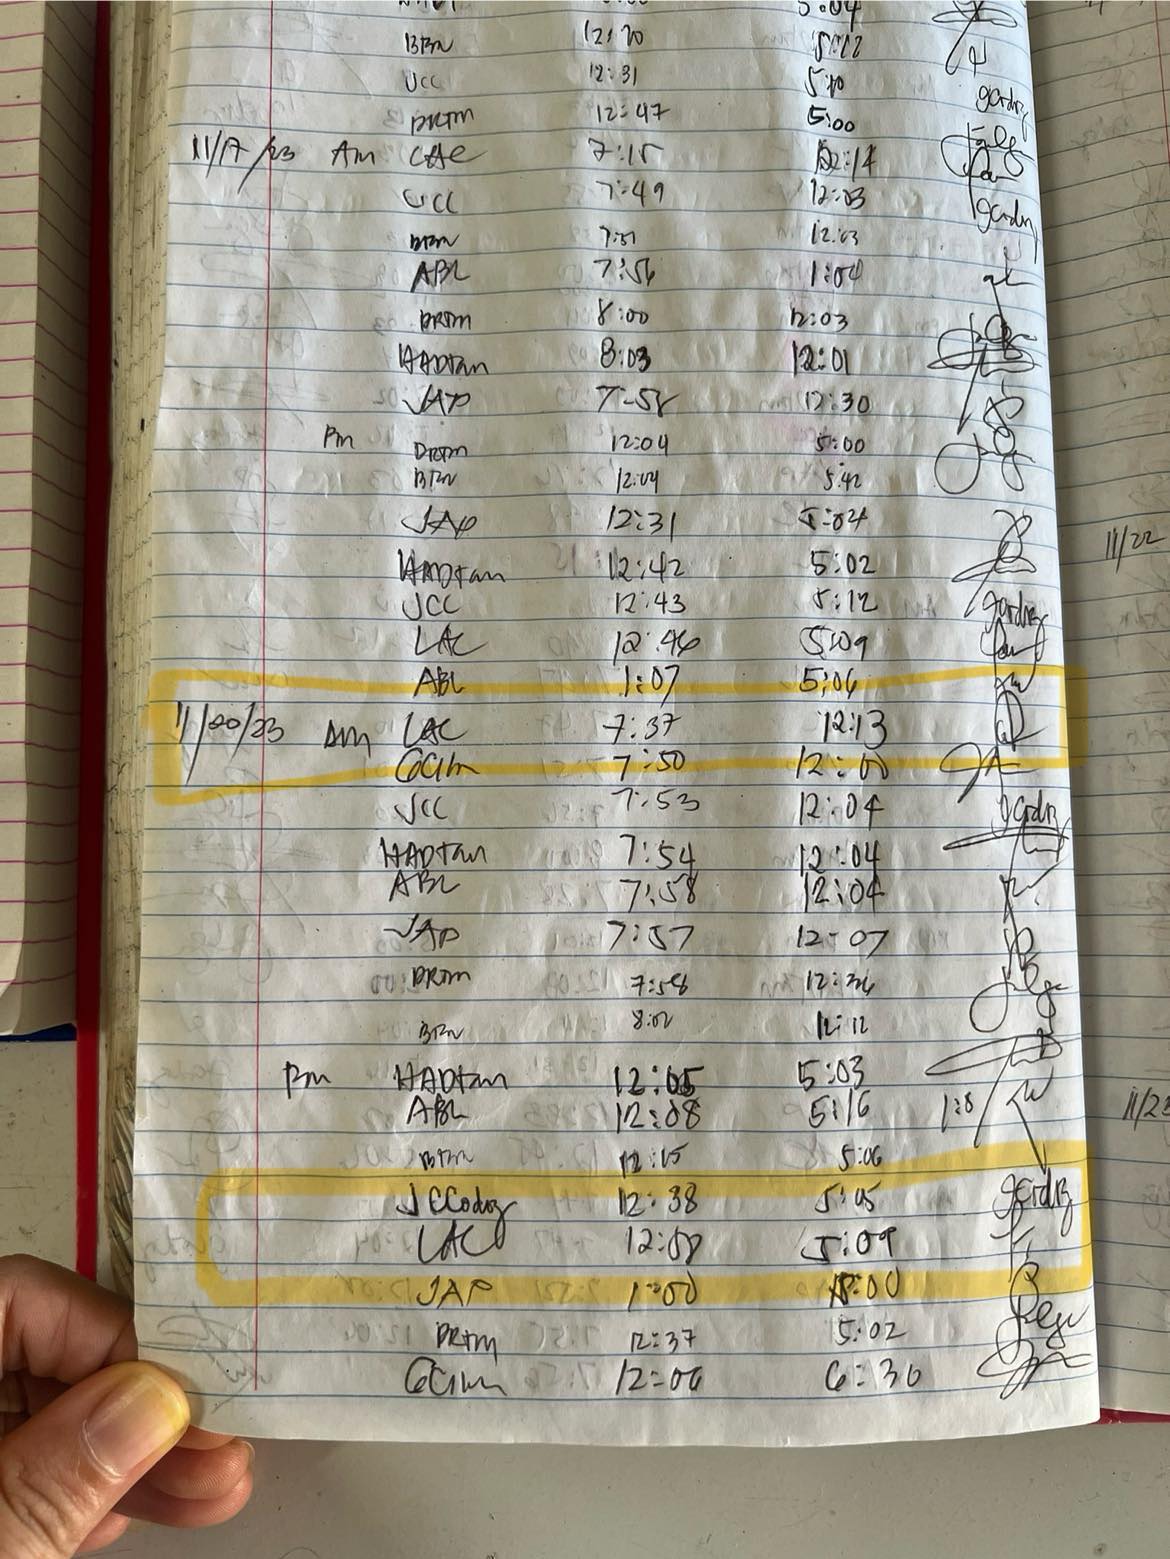 5:04
BBN 12:20 5:12
JCC 12:31 5:10 gcrdrz
DRTM 12:47 5:00
11/17/23 Am CAC 7:15 12:14
JCC 7:49 12:03 gcrdrz
BBN 7:51 12:03
ABL 7:56 1:04
DRTM 8:00 12:03
HADTan 8:03 12:01
JAP 7-58 12:30
Pm DRTM 12:04 5:00
BBN 12:04 5:42
JAP 12:31 5:04
11/22
HADTan 12:42 5:02
JCC 12:43 5:12 gcrdrz
LAC 12:46 5:09
ABL 1:07 5:06
11/20/23 Am LAC 7:37 12:13
GCLm 7:50 12:00
JCC 7:53 12:04 gcrdrz
HADTan 7:54 12:04
ABL 7:58 12:04
JAP 7:57 12-07
DRTM 7:58 12:36
BBN 8:02 12:12
Pm HADTan 12:05 5:03
ABL 12:08 5:16 1:8
11/23
BBN 12:15 5:06
JCCodrz 12:38 5:05 gcrdrz
LAC 12:58 5:09
JAP 1:00 :00
DRTM 12:37 5:02
GCLm 12:06 6:30